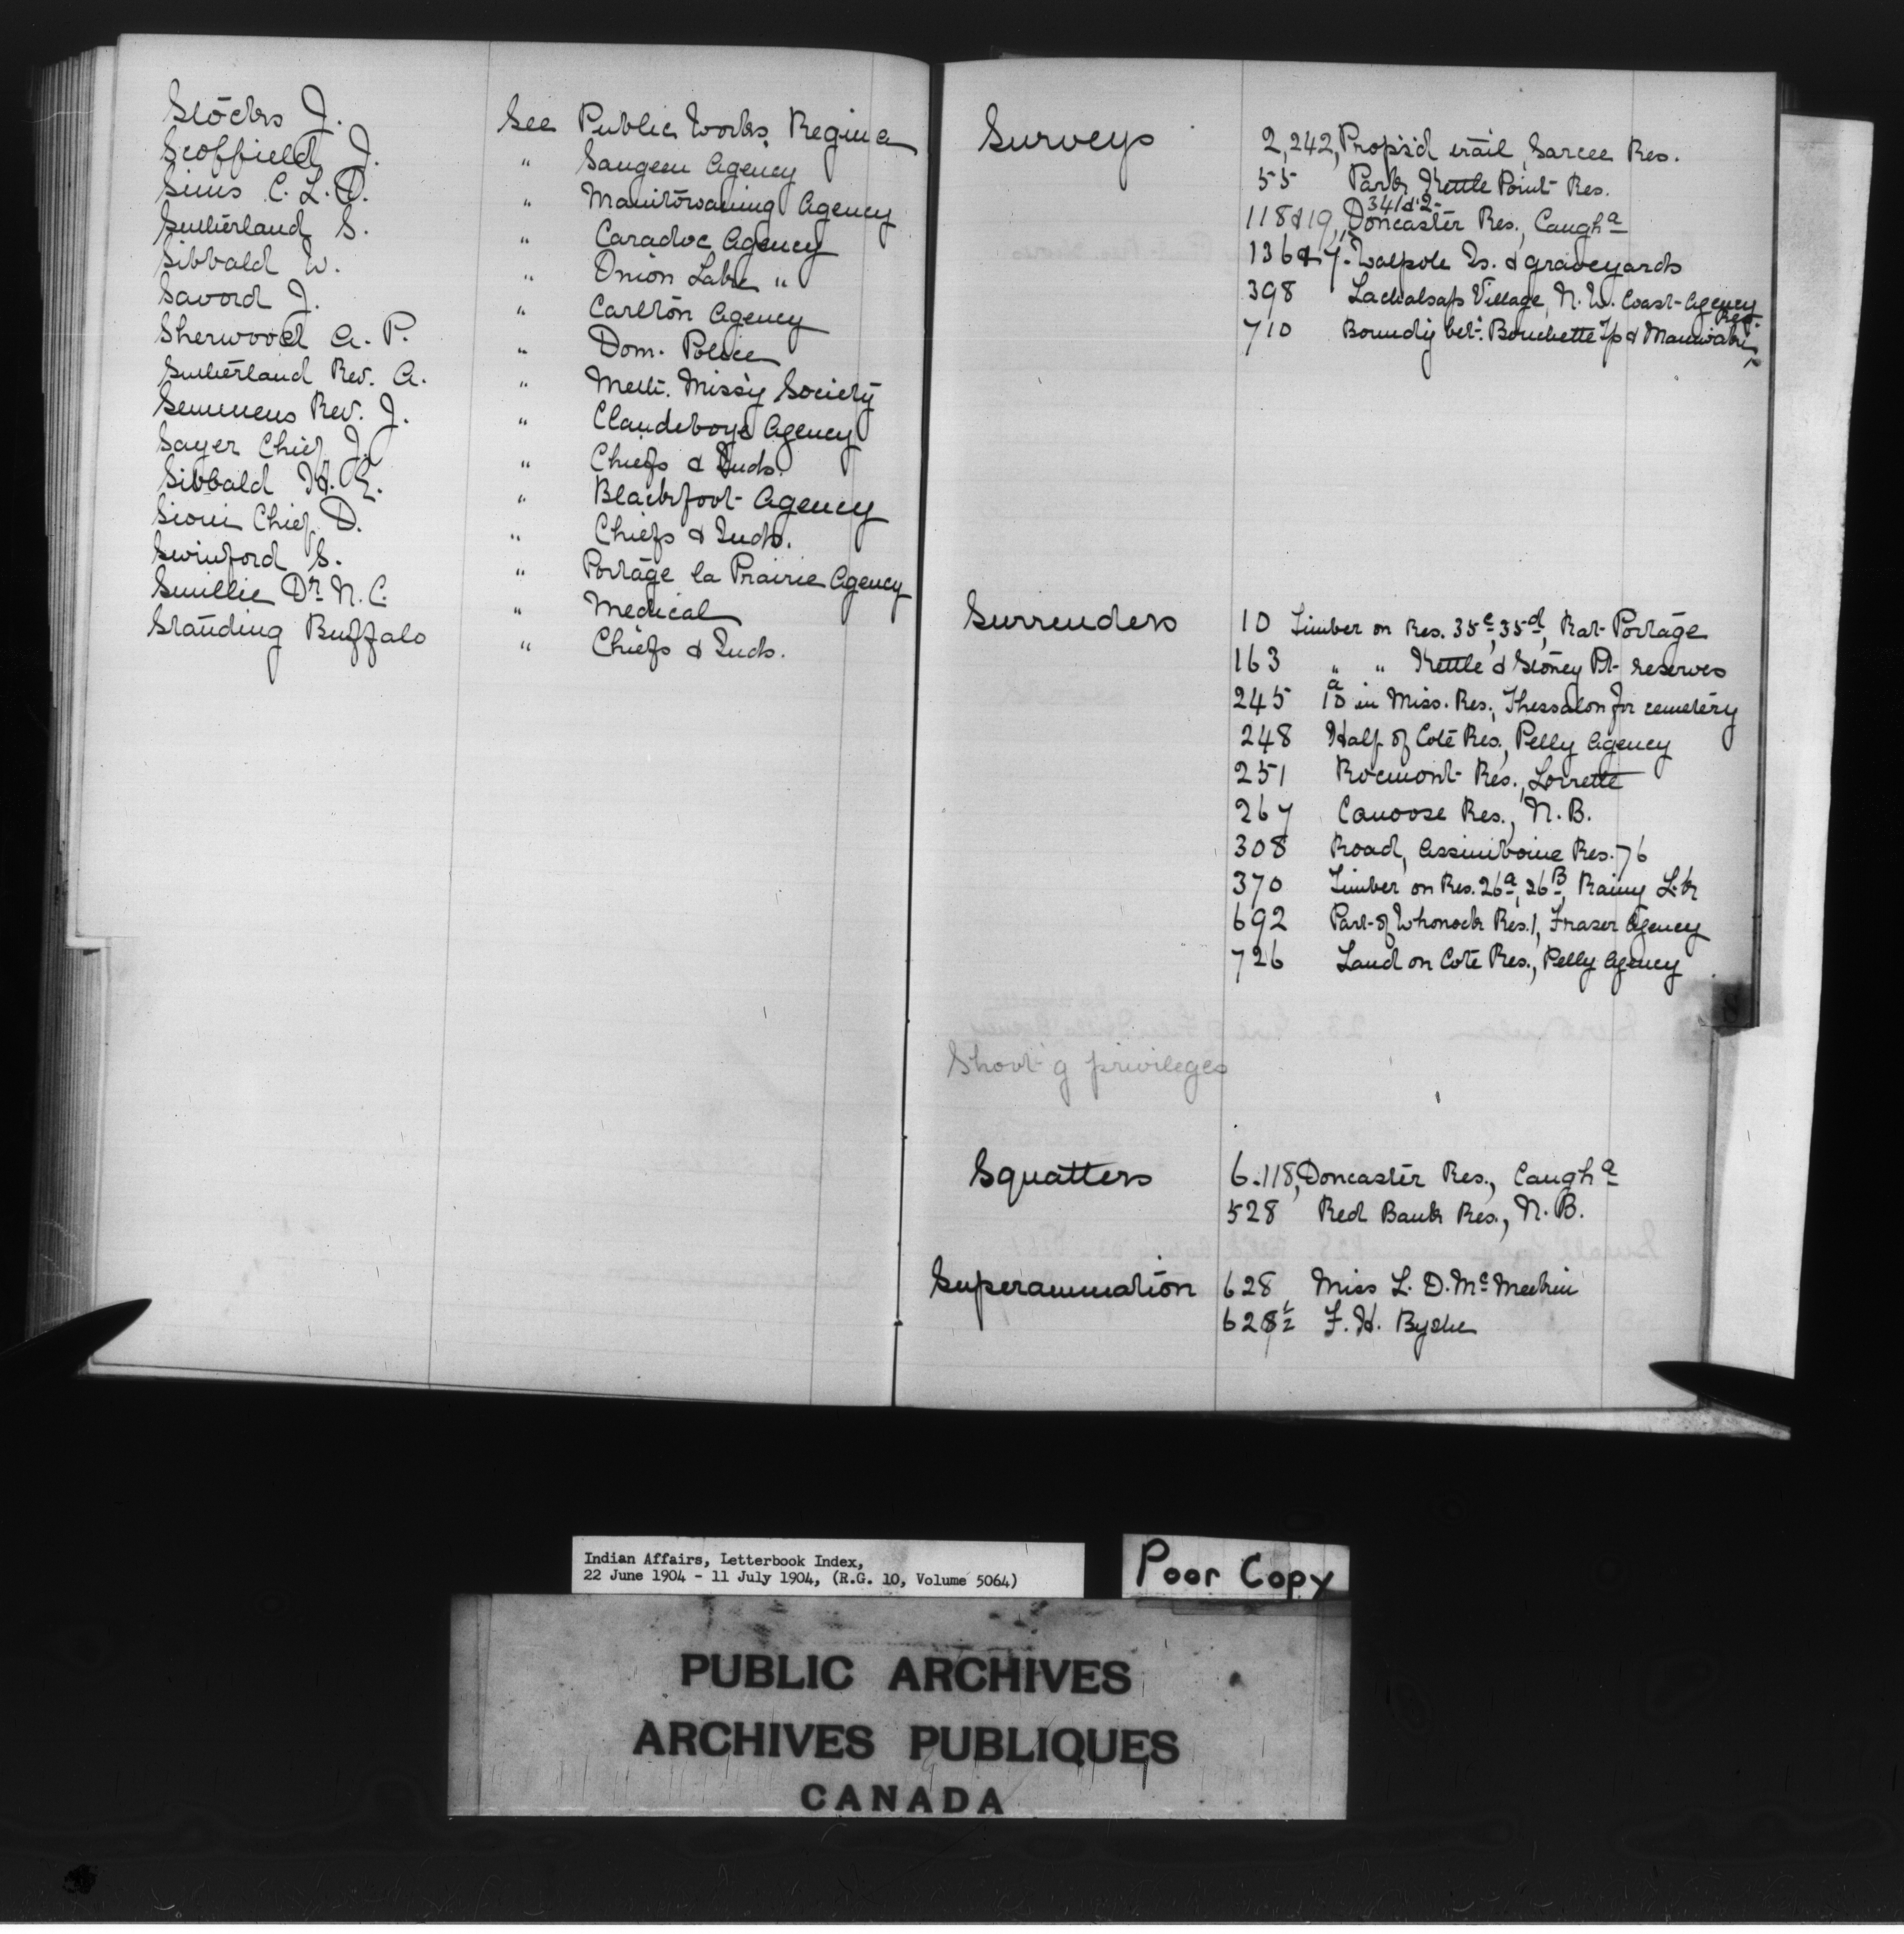 Stocks J. See Public Works, Regina
Scoffield, J. " Saugeen Agency
Sims C. L. D. " Manitowaning Agency
Sutherland S. " Caradoc Agency
Sibbald W. " Onion Lake "
Savord J. " Carlton Agency
Sherwood A. P. " Dom. Police
Sutherland Rev. A. " Meth. Miss'y Society
Semmens Rev. J. " Clandeboye Agency
Sayer Chief J. " Chiefs & Inds.
Sibbald H. E. " Blackfoot Agency
Sioui Chief D. " Chiefs & Inds.
Swinford S. " Portage la Prairie Agency
Smillie Dr. N. C. " Medical
Standing Buffalo " Chiefs & Inds.
Surveys 2,242, Propos'd trail, Sarcee Res.
55 Park Kettle Point Res.
341 & 2
118 & 19, Doncaster Res., Caugha
136 & 7 Walpole Is. & graveyards
398 Lachalsap Village, N.W. Coast Agency
710 Boundy bet. Bouchette Tp & Maniwaki Res.
Surrenders 10 Timber on Res. 35c, 35d, Rat Portage
163 " " Kettle & Stoney Pt reserves
245 1a in Miss. Res., Thessalon for cemetery
248 Half of Coté Res., Pelly Agency
251 Rocmont Res., Lorrette
267 Canoose Res., N.B.
308 Road, Assiniboine Res. 76
370 Timber on Res. 26a, 26B, Rainy Lk
692 Part of Whonock Res. 1, Fraser Agency
726 Land on Cote Res., Pelly Agency
Shoot'g privileges
Squatters 6.118, Doncaster Res., Caugha
528 Red Bank Res., N.B.
Superannuation 628 Miss L. D. McMeekin
628½ F. H. Byshe
Indian Affairs, Letterbook Index,
22 June 1904 - 11 July 1904, (R.G. 10, Volume 5064)
Poor Copy
PUBLIC ARCHIVES
ARCHIVES PUBLIQUES
CANADA